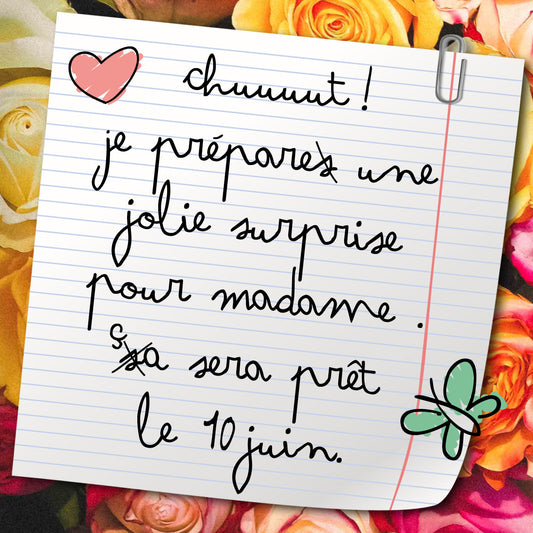 chuuuut !
je prépare une
jolie surprise
pour madame.
ça sera prêt
le 10 juin.